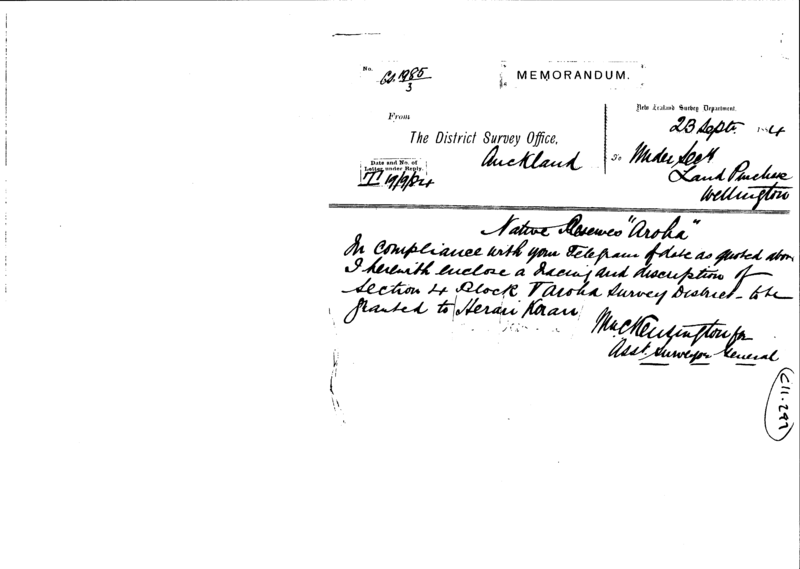 No. 1985/3
MEMORANDUM.
New Zealand Survey Department.
23 Sept. 4
From
The District Survey Office,
Auckland
To Under Secy
Land Purchase
Wellington
Date and No. of
Letter under Reply.
T 19/9/84
Native Reserves "Aroha"
In compliance with your Telegram of date as quoted above
I herewith enclose a tracing and discription of
Section 4 Block V Aroha Survey District - to be
granted to Herari
for
Asst Surveyor General
C11.297